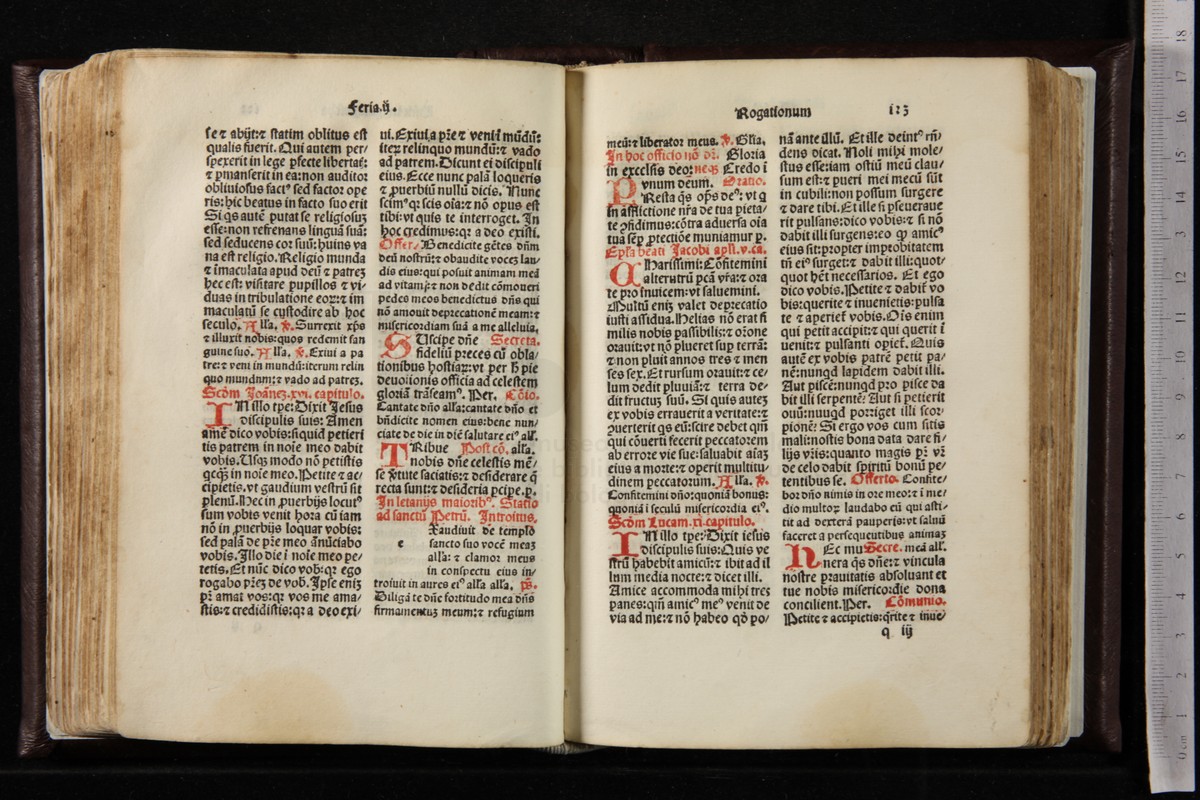 Feria.ij.
se ⁊ abijt:⁊ statim oblitus est
qualis fuerit. Qui autem per/
spexerit in lege ꝑfecte libertatꝭ:
⁊ ꝑmanserit in ea:non auditor
obliuiosus factꝰ sed factor ope
ris:hic beatus in facto suo erit
Si q̄s autē putat se religiosuꝫ
esse:non refrenans linguā suā:
sed seducens cor suū:huius va
na est religio. Religio munda
⁊ īmaculata apud deū ⁊ patreꝫ
hec est: visitare pupillos ⁊ vi/
duas in tribulatione eoꝝ:⁊ im
maculatū se custodire ab hoc
seculo. Alla. ℣. Surrexit xp̄s
⁊ illuxit nobis:quos redemit san
guine suo. Alla. ℣. Exiui a pa
tre:⁊ veni in mundū:iterum relin
quo mundum:⁊ vado ad patreꝫ.
Scd̄m Joāneꝫ.xvi. capitulo.
IN illo tp̄e:Dixit Jesus
discipulis suis: Amen
amē dico vobis:siquid petieri
tis patrem in noīe meo dabit
vobis. Usqꝫ modo nō petistis
qcqꝫ in noīe meo. Petite ⁊ ac/
cipietis.vt gaudium vestrū sit
plenū. Hec in ꝓuerbijs locutꝰ
sum vobis venit hora cū iam
nō in ꝓuerbijs loquar vobis:
sed palā de pr̄e meo ānūciabo
vobis. Illo die ī noīe meo pe/
tetis. Et nūc dico vob:qꝛ ego
rogabo pr̄eꝫ de vob. Ipse eniꝫ
pr̄ amat vos:qꝛ vos me ama/
stis:⁊ credidistis:qꝛ a deo exi/
ui. Exiui a pr̄e ⁊ veni ī mūdū:
iteꝝ relinquo mundū:⁊ vado
ad patrem. Dicunt ei discipuli
eius. Ecce nunc palā loqueris
⁊ ꝓuerbiū nullū dicis. Nunc
scimꝰ qꝛ scis oīa:⁊ nō opus est
tibi:vt quis te interroget. In
hoc credimus:qꝛ a deo existi.
Offer. Benedicite gētes dn̄m
deū nostrū:⁊ obaudite voceꝫ lau/
dis eius:qui posuit animam meā
ad vitam:⁊ non dedit cōmoueri
pedes meos benedictus dn̄s qui
nō amouit deprecationē meam:⁊
misericordiam suā a me alleluia.
SUscipe dn̄e Secreta.
fideliū preces cū obla/
tionibus hostiaꝝ:vt per h̄ pie
deuotionis officia ad celestem
gloriā trāseamꝰ. Per. Cōio.
Cantate dn̄o alla:cantate dn̄o et
bn̄dicite nomen eius:bene nun/
ciate de die in diē salutare eiꝰ all.
TRibue Post cō. alla.
nobis dn̄e celestis mē/
se ꝟtute saciatis:⁊ desiderare q̄
recta sunt:⁊ desiderata ꝑcipe.ꝑ.
In letanijs maioribꝰ. Statio
ad sanctū Petrū. Introitus.
e
Exaudiuit de templo
sancto suo vocē meaꝫ
alla: ⁊ clamor meus
in conspectu eius in/
troiuit in aures eiꝰ alla alla. ps̄.
Diligā te dn̄e fortitudo mea dn̄s
firmamentuꝫ meum:⁊ refugium
Rogationum 123
meū:⁊ liberator meus. ℣. Gl̄ia.
In hoc officio nō dr̄. Gloria
in excelsis deo:neqꝫ Credo i
PResta q̄s op̄s deꝰ: vt q̄ vnum deum. Oratio.
in afflictione nr̄a de tua pieta/
te ꝯfidimus:cōtra aduersa oīa
tua sēp ꝓtectiōe muniamur ꝑ.
Ep̄la beati Jacobi apl̄i.v.ca.
CHarissimi: Cōfitemini
alterutrū pcā vr̄a:⁊ ora
te pro inuicem:vt saluemini.
Multū eniꝫ valet deprecatio
iusti assidua. Helias nō erat si
milis nobis passibil:⁊ oīone
orauit:vt nō plueret sup terrā:
⁊ non pluit annos tres ⁊ men
ses sex. Et rursum orauit:⁊ ce/
lum dedit pluuiā:⁊ terra de/
dit fructuꝫ suū. Si quis auteꝫ
ex vobis errauerit a veritate:⁊
ꝯuerterit q̄s eū:scire debet qm̄
qui cōuerti fecerit peccatorem
ab errore vie sue:saluabit aīaꝫ
eius a morte:⁊ operit multitu/
dinem peccatorum. Alla. ℣.
Confitemini dn̄o:quoniā bonus:
quoniā ī seculū misericordia eiꝰ.
Scd̄m Lucam.xi.capitulo.
IN illo tp̄e:Dixit iesus
discipulis suis:Quis ve
strū habebit amicū:⁊ ibit ad il
lum media nocte:⁊ dicet illi.
Amice accommoda mihi tres
panes:qm̄ amicꝰ meꝰ venit de
via ad me:⁊ nō habeo qd̄ po/
nā ante illū. Et ille deintꝰ rn̄/
dens dicat. Noli mihi mole/
stus esse:iam ostiū meū clau/
sum est:⁊ pueri mei mecū sūt
in cubili:non possum surgere
⁊ dare tibi. Et ille si ꝑseueraue
rit pulsans:dico vobis:⁊ si nō
dabit illi surgens:eo ꝙ amicꝰ
eius sit:propter improbitatem
tn̄ eiꝰ surget:⁊ dabit illi:quot/
quot hꝫt necessarios. Et ego
dico vobis. Petite ⁊ dabit̄ vo
bis:querite ⁊ inuenietis:pulsa
te ⁊ aperiet̄ vobis. Oīs enim
qui petit accipit:⁊ qui querit ī
uenit:⁊ pulsanti opiet̄. Quis
autē ex vobis patrē petit pa/
nē:nunqd lapidem dabit illi.
Aut piscē:nunqd pro pisce da
bit illi serpentē: Aut si petierit
ouū:nunqd porriget illi scor
pionē: Si ergo vos cum sitis
mali:nostis bona data dare fi/
lijs vr̄is:quanto magis pr̄ vr̄
de celo dabit spiritū bonū pe/
tentibus se. Offerto. Confite/
bor dn̄o nimis in ore meo:⁊ ī me/
dio multoꝝ laudabo eū qui asti/
tit ad dexterā pauperis:vt saluā
faceret a persequentibus animaꝫ
HEc mu Secre. meā all.
nera q̄s dn̄e:⁊ vincula
nostre prauitatis absoluant et
tue nobis misericordie dona
concilient.Per. Cōmunio.
Petite ⁊ accipietis:q̄rite ⁊ inue/
q iij